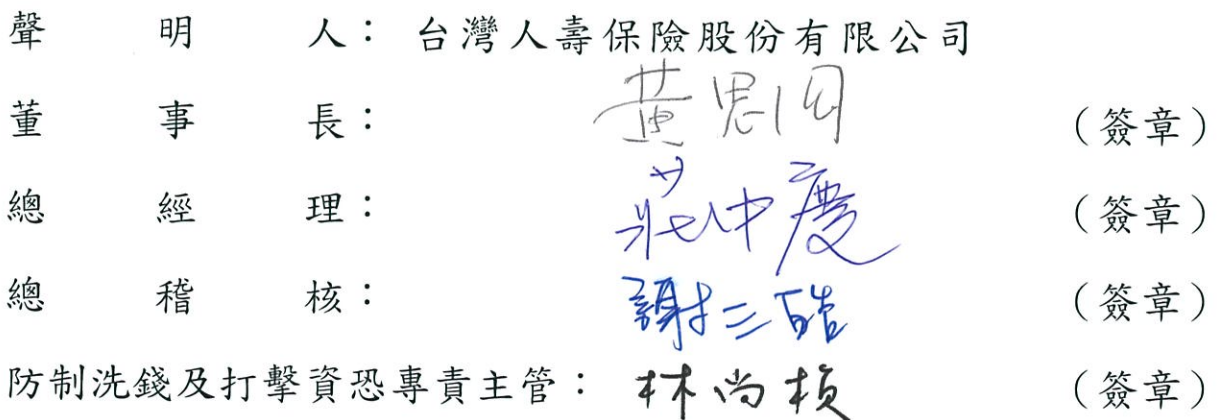 聲明人：台灣人壽保險股份有限公司
董事長：黃思國（簽章）
總經理：莊中慶（簽章）
總稽核：謝三皓（簽章）
防制洗錢及打擊資恐專責主管：林尚楨（簽章）